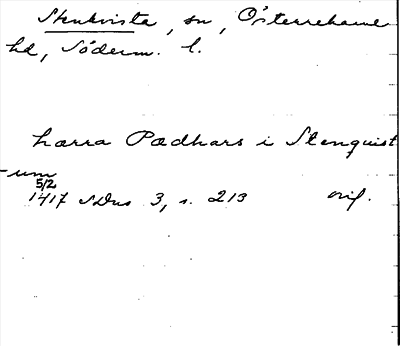 Stenkvista, sn, Österrekarne
hd, Söderm. l.
hærra Pædhars i Stenquist
-um
5/2
1417 SDns 3, s. 213 orig.